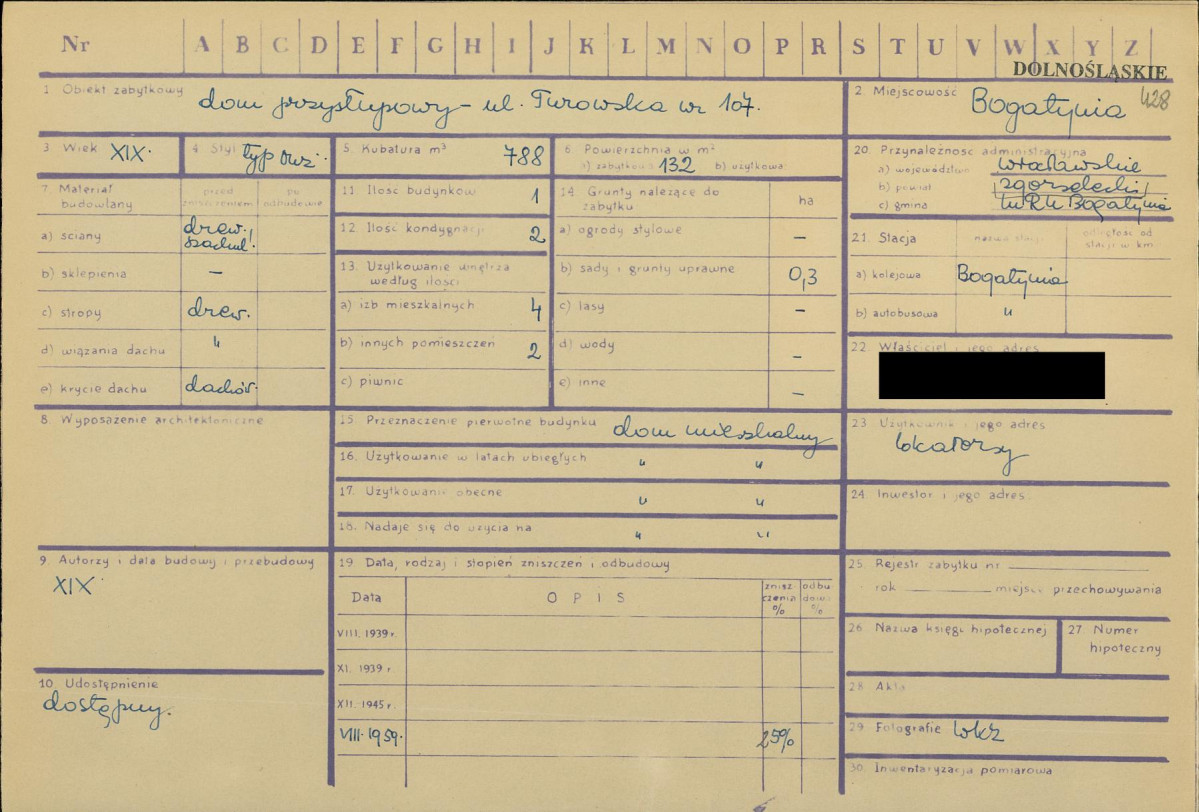 Nr A B C D E F G H I J K L M N O P R S T U V W X Y Z
DOLNOŚLĄSKIE
1. Obiekt zabytkowy dom przysłupowy – ul. Turowska nr 107.
2. Miejscowość Bogatynia 428
3. Wiek XIX.
4. Styl typowy.
5. Kubatura m³ 788
6. Powierzchnia w m²
a) zabytkowa 132 b) użytkowa
7. Materiał budowlany
przed zniszczeniem
po odbudowie
a) ściany drew. szachul.
b) sklepienia –
c) stropy drew.
d) wiązania dachu "
e) krycie dachu dachów.
11. Ilość budynków 1
12. Ilość kondygnacji 2
13. Użytkowanie wnętrza
według ilości
a) izb mieszkalnych 4
b) innych pomieszczeń 2
c) piwnic
14. Grunty należące do
zabytku
ha
a) ogrody stylowe –
b) sady i grunty uprawne 0,3
c) lasy –
d) wody –
e) inne –
20. Przynależność administracyjna
a) województwo wrocławskie
b) powiat zgorzelecki
c) gmina MRN Bogatynia
21. Stacja
nazwa stacji
odległość od
stacji w km
a) kolejowa Bogatynia
b) autobusowa "
22. Właściciel i jego adres
8. Wyposażenie architektoniczne
15. Przeznaczenie pierwotne budynku dom mieszkalny
16. Użytkowanie w latach ubiegłych " "
17. Użytkowanie obecne " "
18. Nadaje się do użycia na " "
23. Użytkownik i jego adres
lokatorzy
24. Inwestor i jego adres
9. Autorzy i data budowy i przebudowy
XIX
10. Udostępnienie
dostępny.
19. Data, rodzaj i stopień zniszczeń i odbudowy
Data
OPIS
znisz
czenia
%
odbu
dowa
%
VIII. 1939 r.
XI. 1939 r.
XII. 1945 r.
VIII. 1959. 25%
25. Rejestr zabytku nr
rok miejsce przechowywania
26. Nazwa księgi hipotecznej
27. Numer
hipoteczny
28. Akta
29. Fotografie WKZ
30. Inwentaryzacja pomiarowa